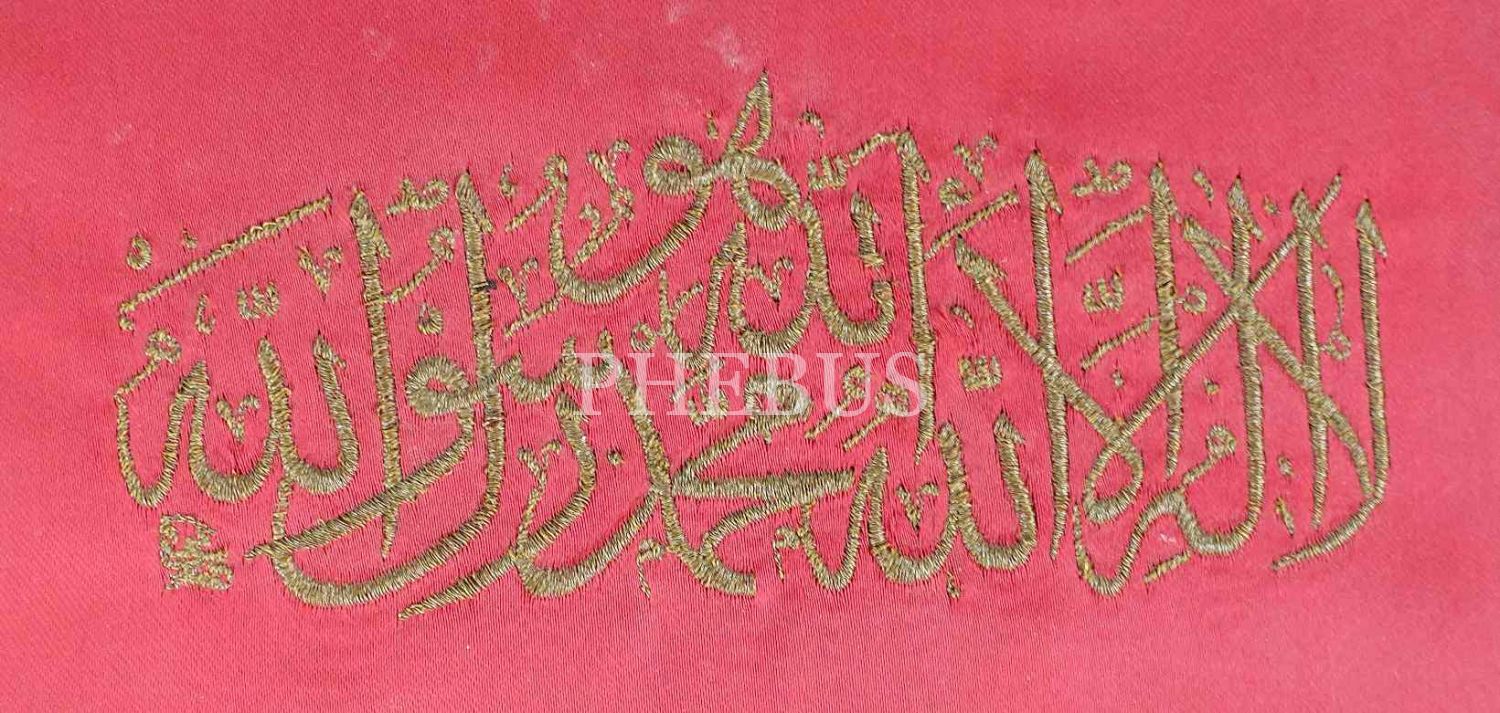 لا اله الا الله
محمد رسول الله
PHEBUS